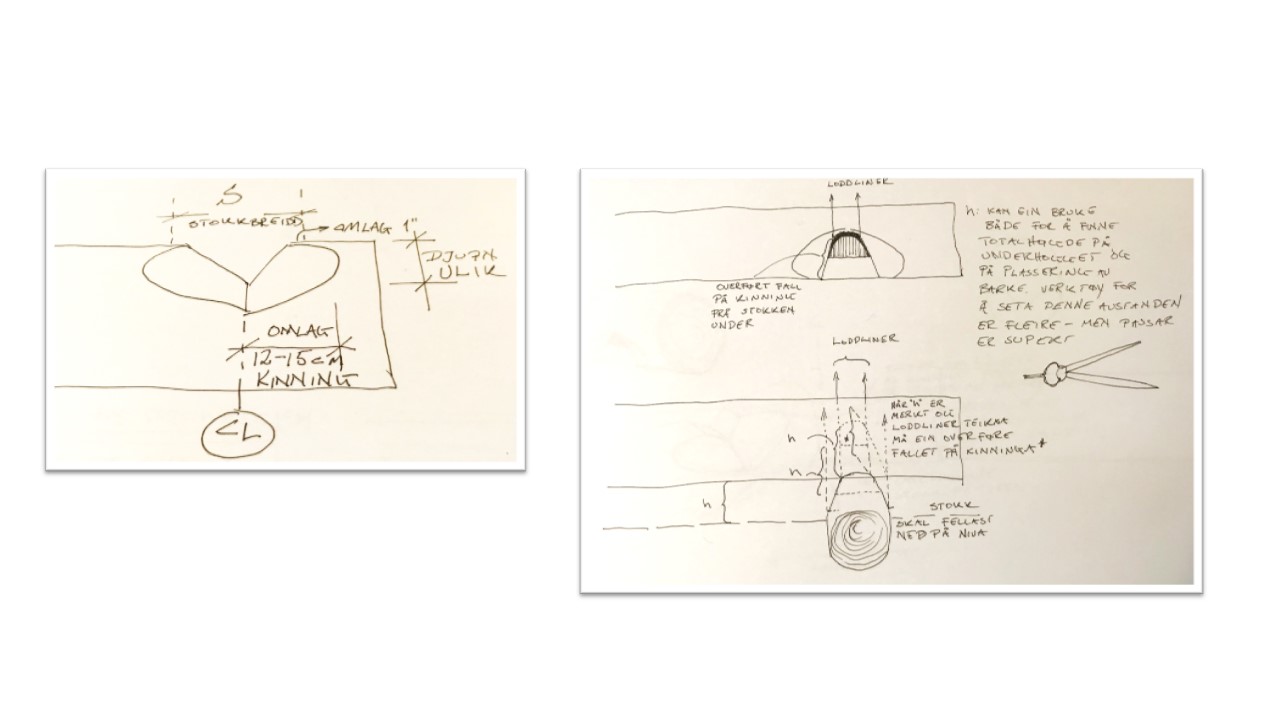 S
STOKKBREIDD
OMLAG 1"
DJUPN
ULIK
OMLAG
12-15 CM
KINNING
CL
LODDLINER
h: KAN EIN BRUKE
BÅDE FOR Å FINNE
TOTALHØGDE PÅ
UNDERHOGGET OG
PÅ PLASSERING AV
BARKE. VERKTØY FOR
Å SETA DENNE AVSTANDEN
ER FLEIRE - MEN PASSAR
ER SUPERT
OVERFØRT FALL
PÅ KINNING
FRÅ STOKKEN
UNDER
LODDLINER
NÅR "h" ER
MERKT OG
LODDLINER TEIKNA
MÅ EIN OVERFØRE
FALLET PÅ KINNINGA*
h
*
h
h
STOKK
SKAL FELLAST
NED PÅ NIVÅ